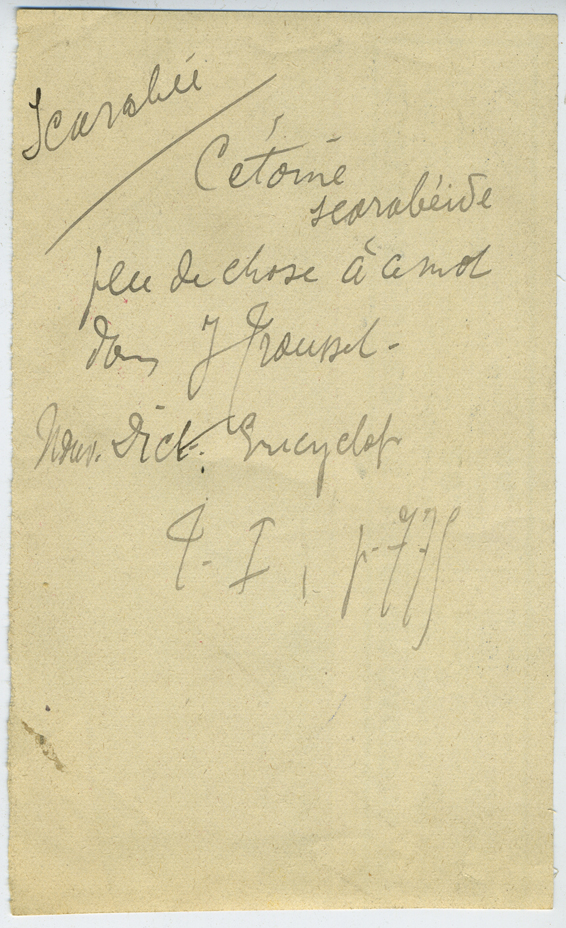 Scarabée
Cétoine
scarabéide
peu de chose à ce mot
dans J Trousset.
Nouv. Dict. Encyclop
T. I, p. 775